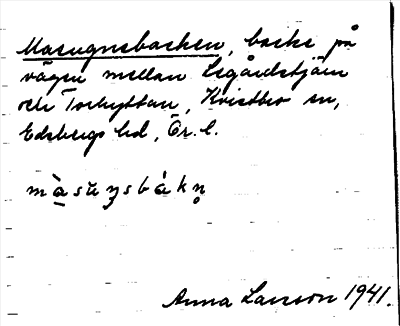 Masugnsbacken, backe på
vägen mellan Legårdstjärn
och Torhyttan, Kvistbro sn,
Edsbergs hd, Ör. l.
màsuŋsbákn̥
Anna Larsson 1941.